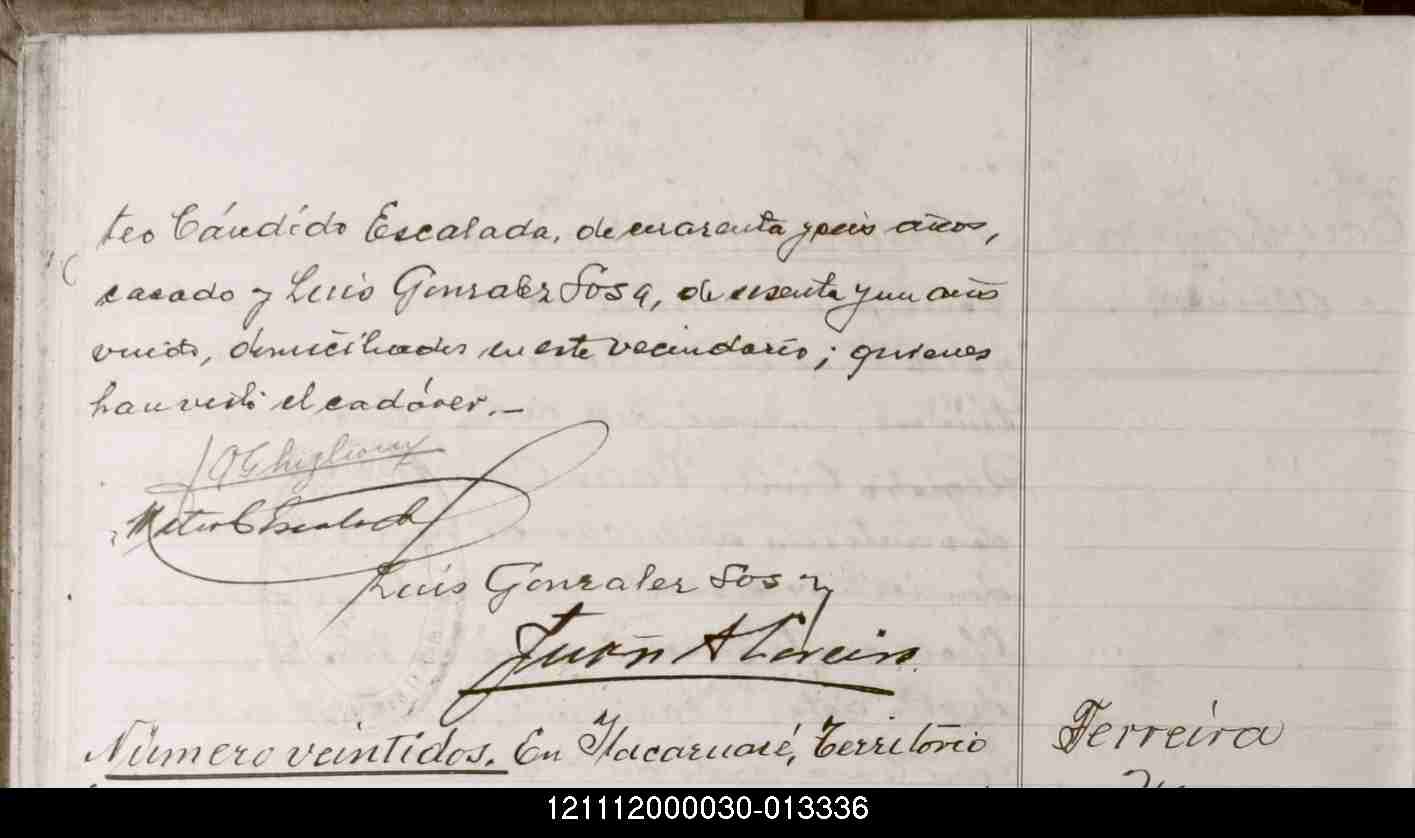 teo Cándido Escalada, de cuarenta y seis años,
casado y Luis Gonzalez Sosa, de sesenta y un años
viudo, domiciliados en este vecindario; quienes
han visto el cadáver.—
Mateo C Escalada
Luis Gonzalez Sosa
Juan A
Número veintidos. En Itacaruaré, Territorio
Ferreira
121112000030-013336